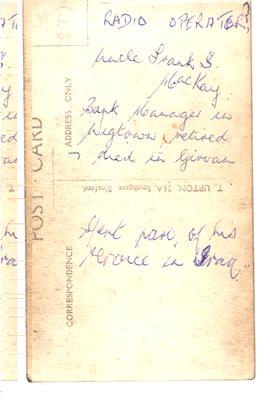 RADIO OPERATOR?
Uncle Frank S.
MacKay.
Bank Manager in
Wigtown, retired
→ died in Girvan
Spent part of his
service in Iraq.
POST CARD
ADDRESS ONLY
CORRESPONDENCE
T. UPTON, 21A, Southgate, Sleaford.